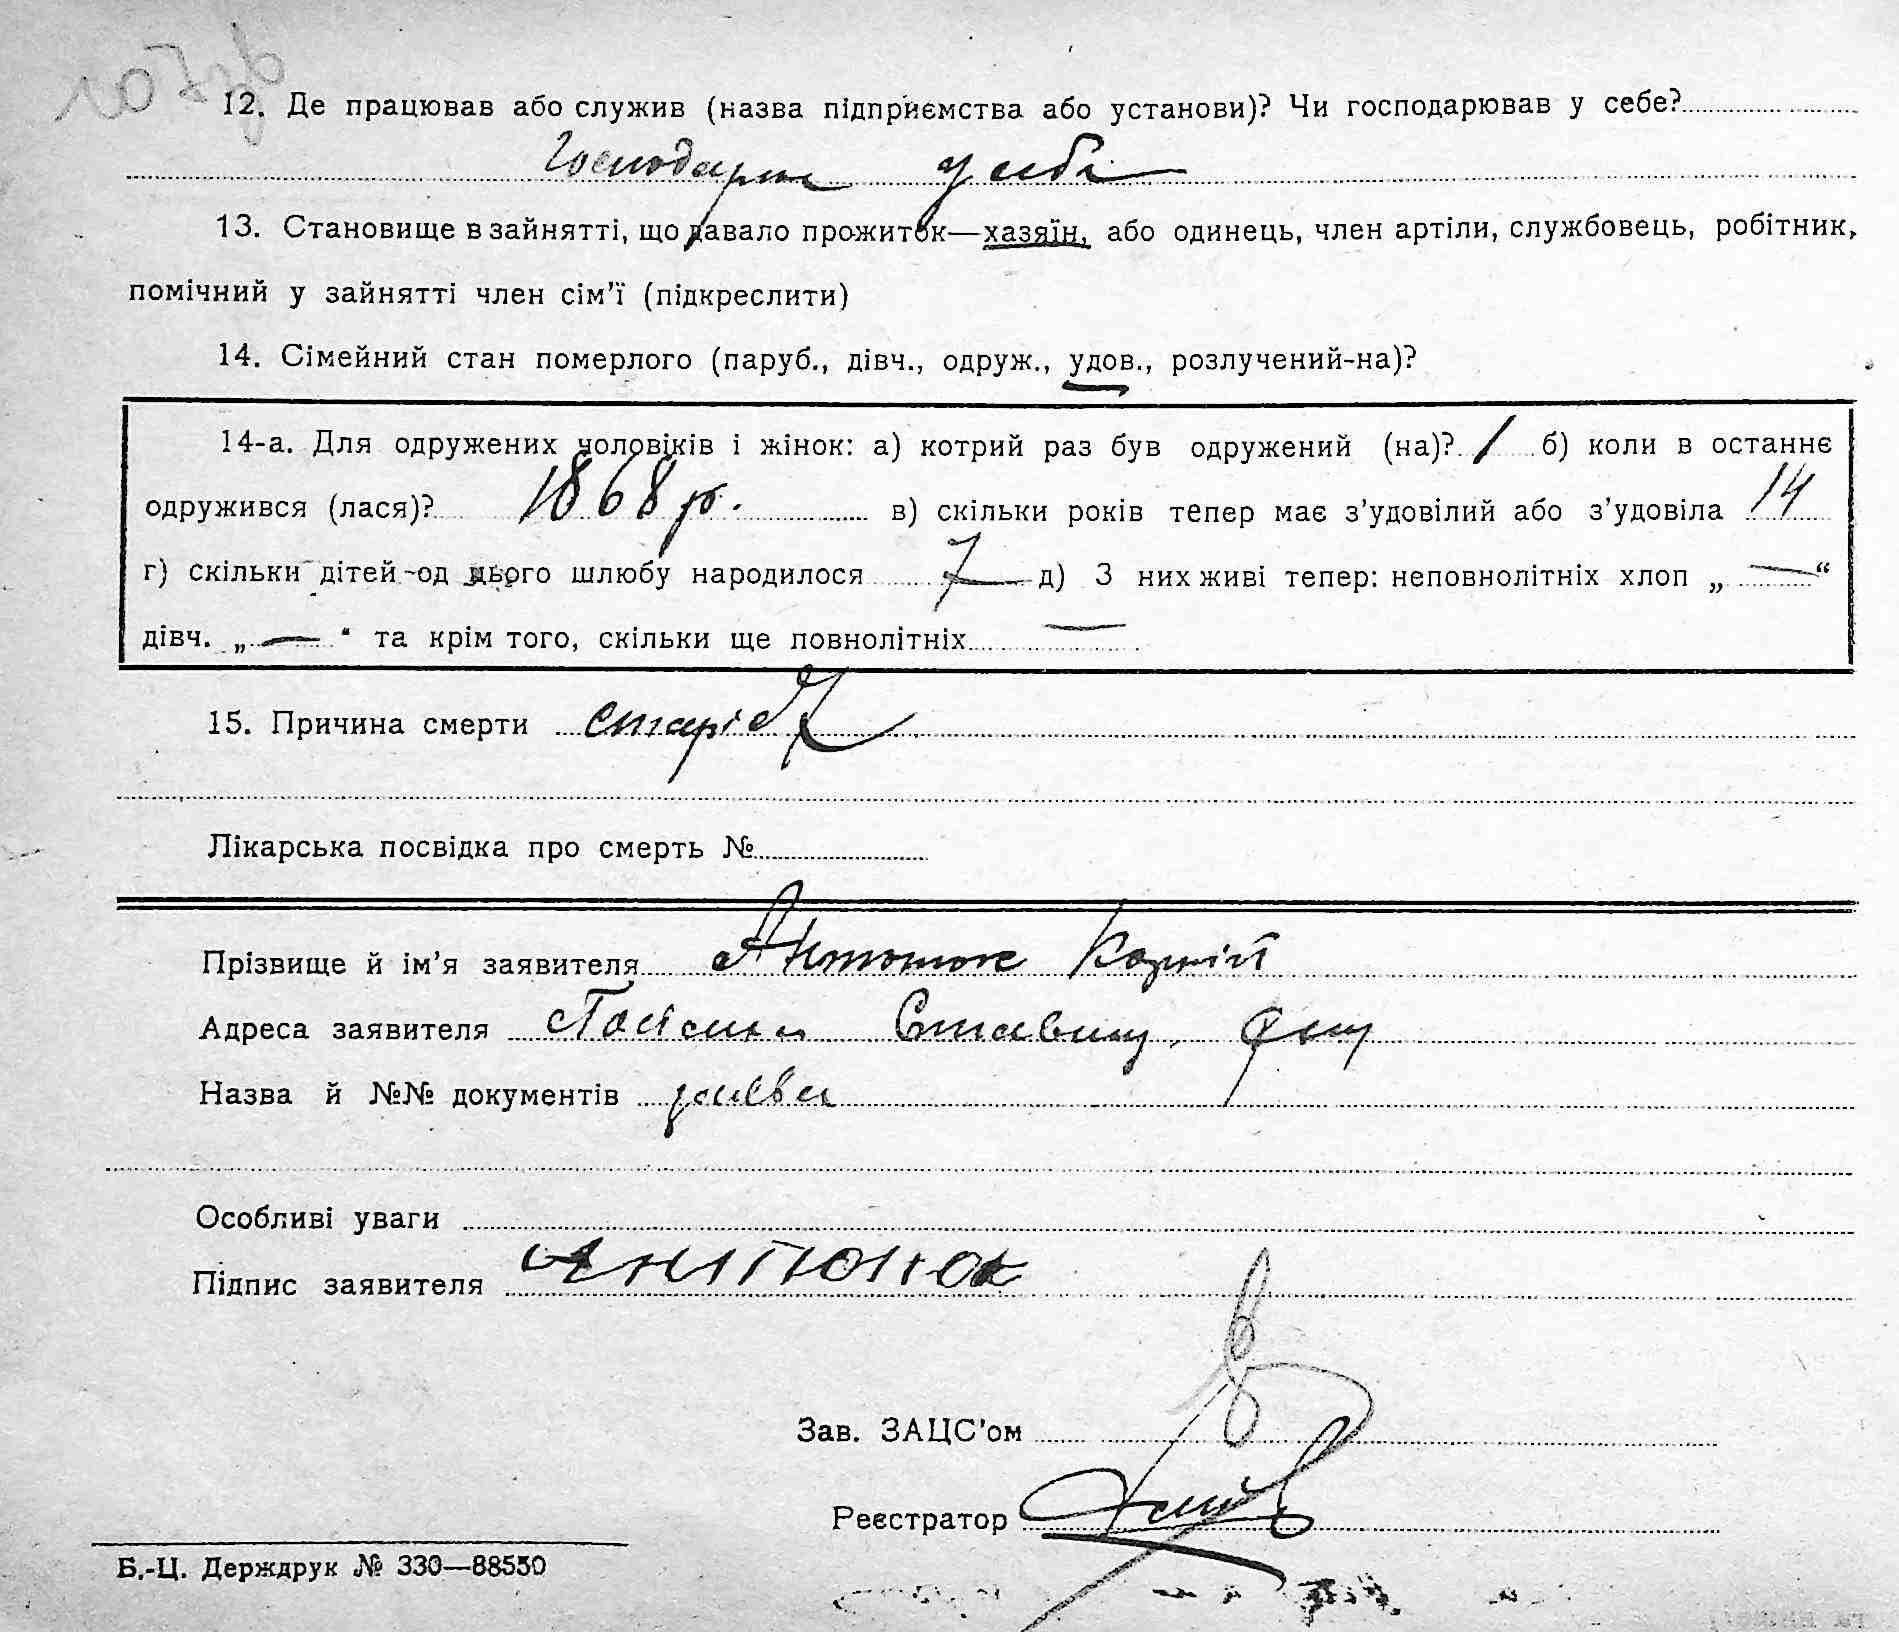 12. Де працював або служив (назва підприємства або установи)? Чи господарював у себе?
Господарив у себе
13. Становище в зайнятті, що давало прожиток—хазяїн, або одинець, член артіли, службовець, робітник,
помічний у зайнятті член сім'ї (підкреслити)
14. Сімейний стан померлого (паруб., дівч., одруж., удов., розлучений-на)?
14-а. Для одружених чоловіків і жінок: а) котрий раз був одружений (на)? 1 б) коли в останнє
одружився (лася)? 1868 р. в) скільки років тепер має з'удовілий або з'удовіла 14
г) скільки дітей од цього шлюбу народилося 7 д) З них живі тепер: неповнолітніх хлоп „ — “
дівч. „ — “ та крім того, скільки ще повнолітніх —
15. Причина смерти старість
Лікарська посвідка про смерть №
Прізвище й ім'я заявителя Антонюк Корній
Адреса заявителя Ставищ.
Назва й №№ документів заява
Особливі уваги
Підпис заявителя Антонюк
Зав. ЗАЦС'ом
Реєстратор
Б.-Ц. Держдрук № 330—88550